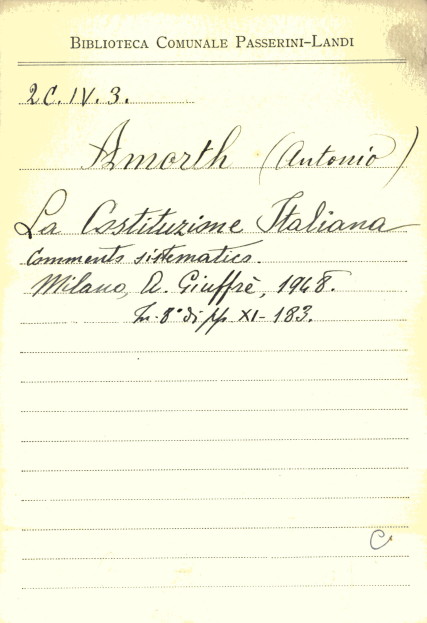 BIBLIOTECA COMUNALE PASSERINI-LANDI
2C.IV.3.
Amorth (Antonio)
La Costituzione Italiana
Commento sistematico.
Milano, A. Giuffrè, 1948.
In-8° di pp XI-183.
C